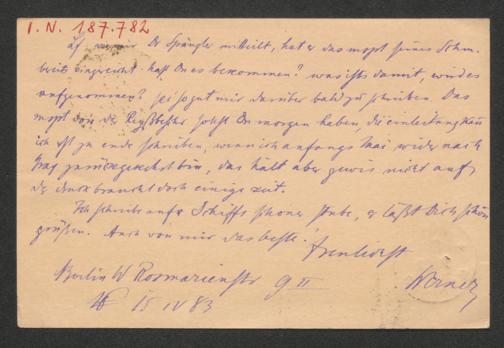 I. N. 187.782
mir Dr Spängler mitteilt, hat er das mspt seines
bereits eingereicht. hast Du es bekommen? was ists damit, wird es
aufgenommen? sei so gut mir darüber bald zu schreiben. Das
mspt von der solst Du morgen haben, die einleitung kan
ich erst zu ende schreiben, wenn ich anfangs Mai wider nach
Graz zurückgekehrt bin, das hält aber gewis nicht auf,
der druck braucht doch einige zeit.
Ich schreibe auf stube, er läßt Dich schön
grüßen. Auch von mir das beste!
freundlichst
Berlin W Rosmarienstr 9 II Werner
15 IV 83